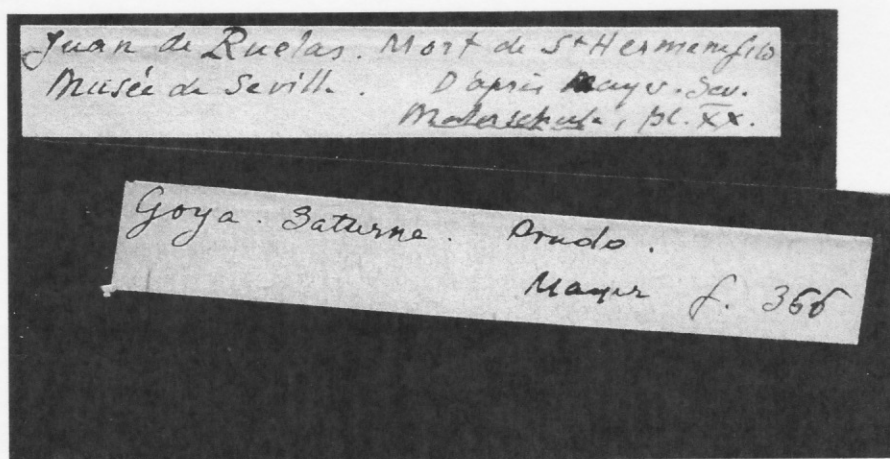 Juan de Ruelas. Mort de St Hermenegild
Musée de Seville. D'après Mayer. Sev.
Malerschule, pl. XX.
Goya. Saturne. Prado.
Mayer f. 366